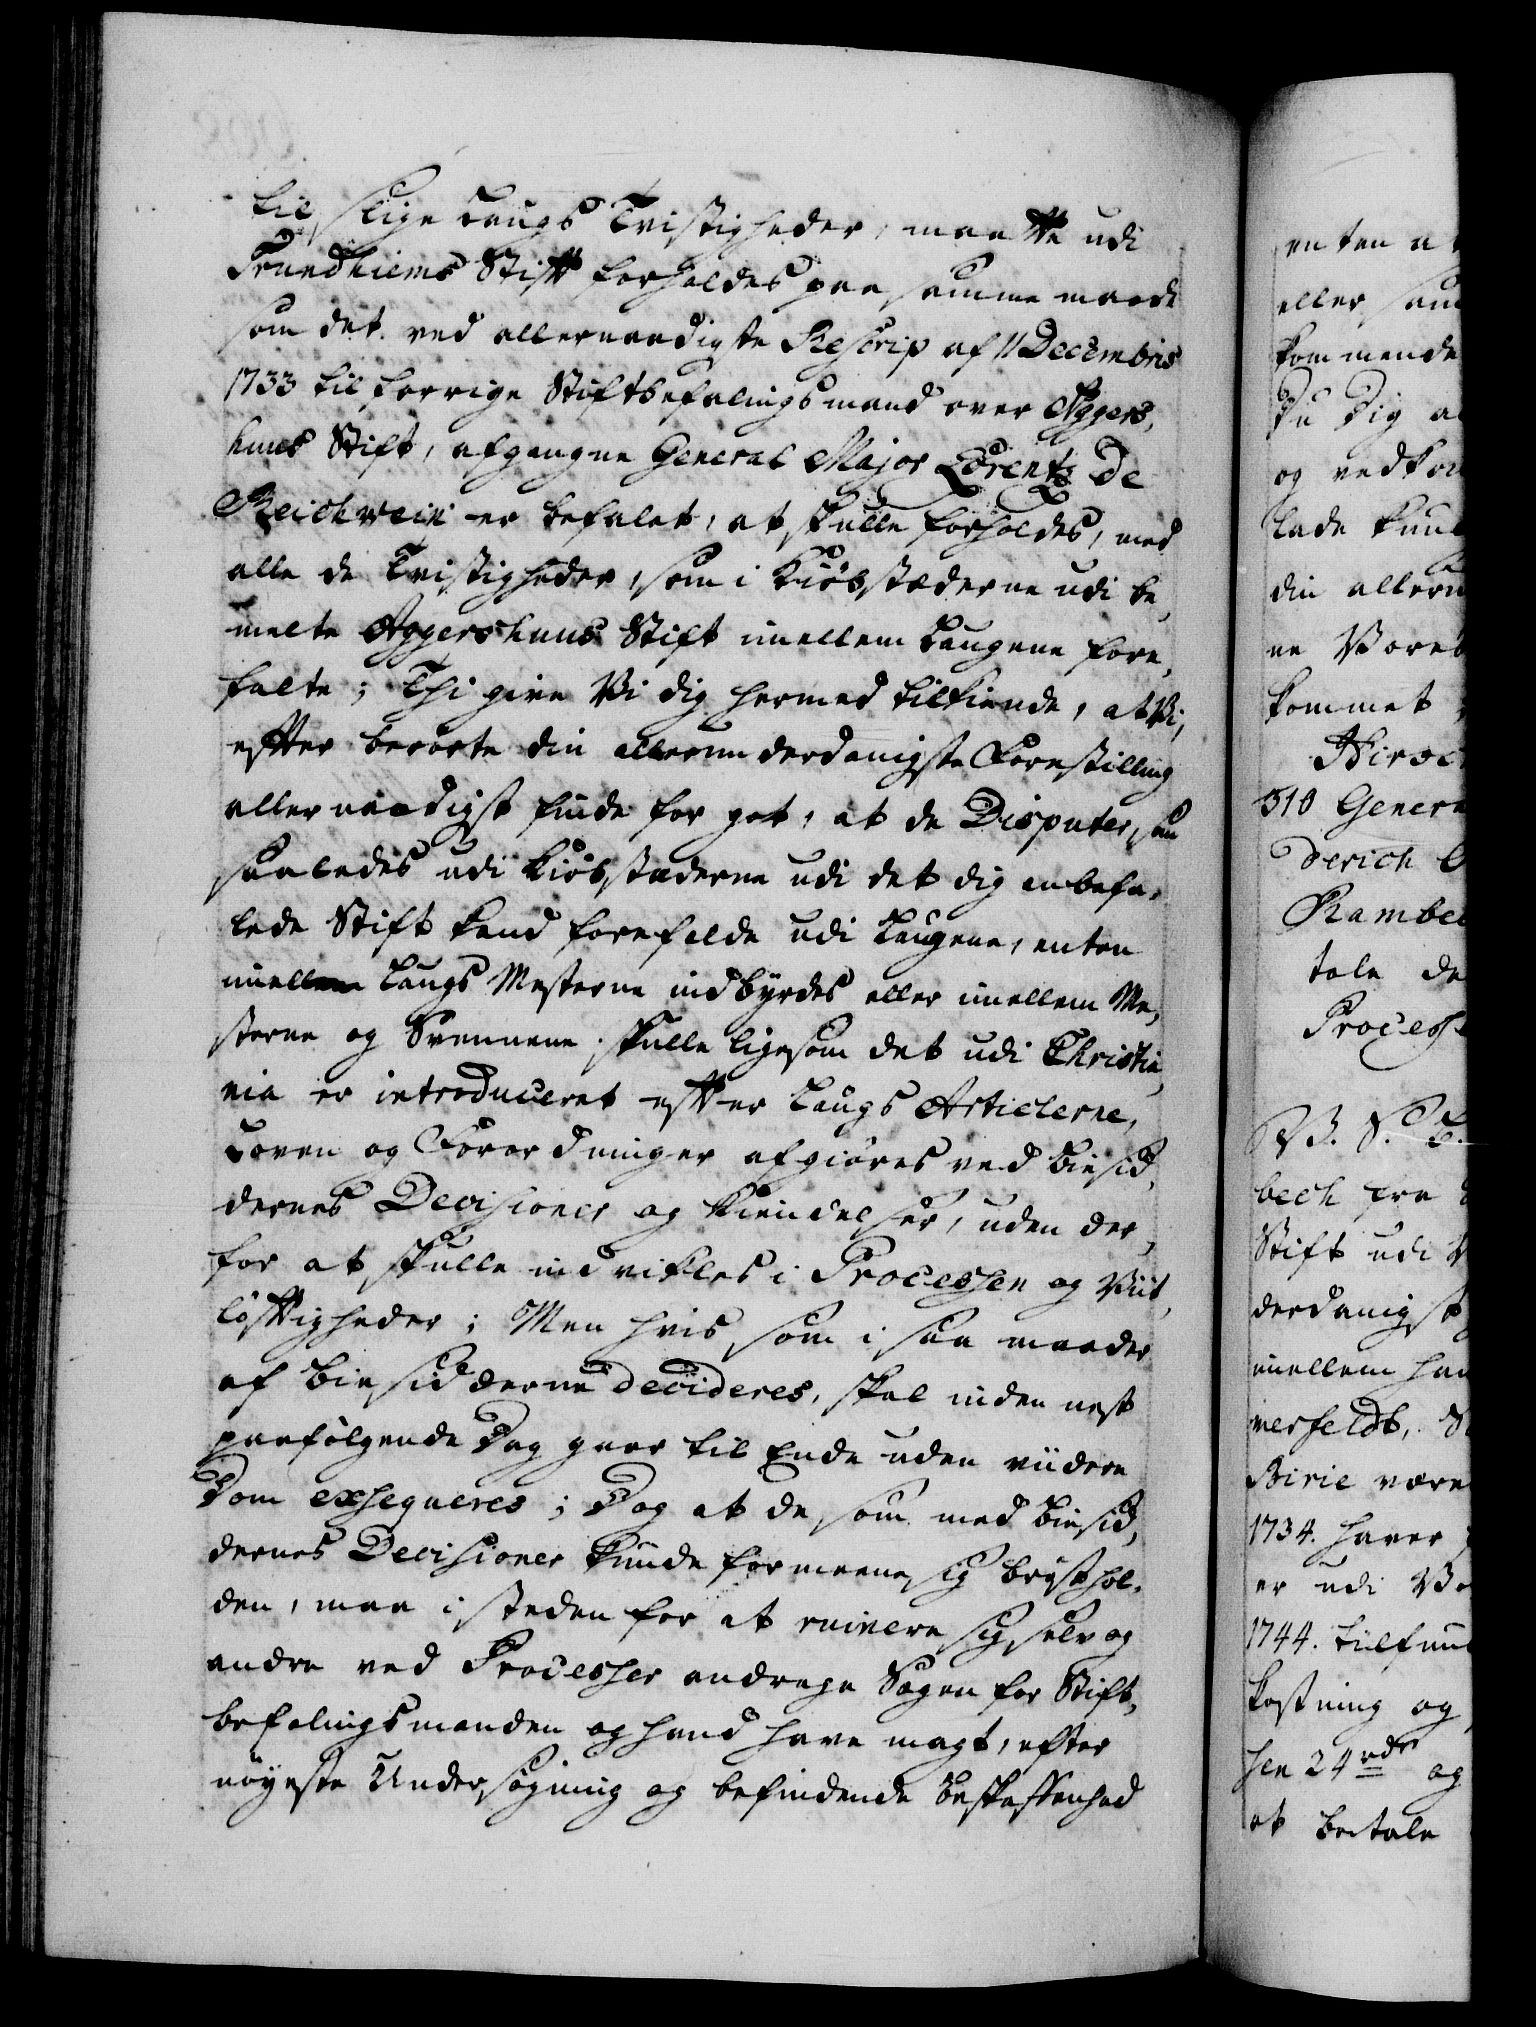 til slige Laugs Tvistigheder, maatte udi
Trundhiems Stift forholdes paa samme maade
som det ved allernaadigste Rescrip af 11 Decembris
1733 til forrige Stiftbefalingsmand over Agers,
huus Stift, afgangne General Major Lorentz De
Reichwein er befalet, at skulle forholdes, med
alle de Tvistigheder, som i Kiöbstæderne udi be,
melte Aggershuus Stift imellem Laugene fore,
falte; Thi give Vi dig hermed tilkiende, at Vi,
efter berörte din allerunderdanigste Forestilling
allernaadigst finde for got, at de Disputer, som
saaledes udi Kiöbstæderne udi det dig anbefa,
lede Stift kand forefalde udi Laugene, enten
imellem Laugs Mesterne indbyrdes eller imellem Me,
sterne og Svennene skulle ligesom det udi Christia,
nia er introduceret efter Laugs Articlerne,
Loven og Forordninger afgiöres ved Biesid,
dernes Decisioner og Kiendelser, uden der,
for at skulle indvikles i Processer og Viit,
löftigheder; Men hvis som i saa maader
af Biesidderne decideres, skal inden nest
paafölgende Dag gaar til Ende uden viidere
Dom exseqveres; Dog at de som med Biesid,
dernes Decisioner kunde formeene sig brösthol,
den, maa i steden for at ruinere sig selv og
andre ved Processer andrage Sagen for Stift,
befalingsmanden og hand have magt, efter
nöyeste Undersögning og befindende Beskaffenhed
enten a
eller sam
kommende
Du dig a
og vedkom
lade
din allern
ne Vores
kommet
310 Genera
derich
tale de
Process
V. S. T.
bech fra
Stift udi
derdanigst
imellem han
Birie være
1734. haver
er udi Vo
1744. tilfun
kostning og
sen 24rdr og
at betale